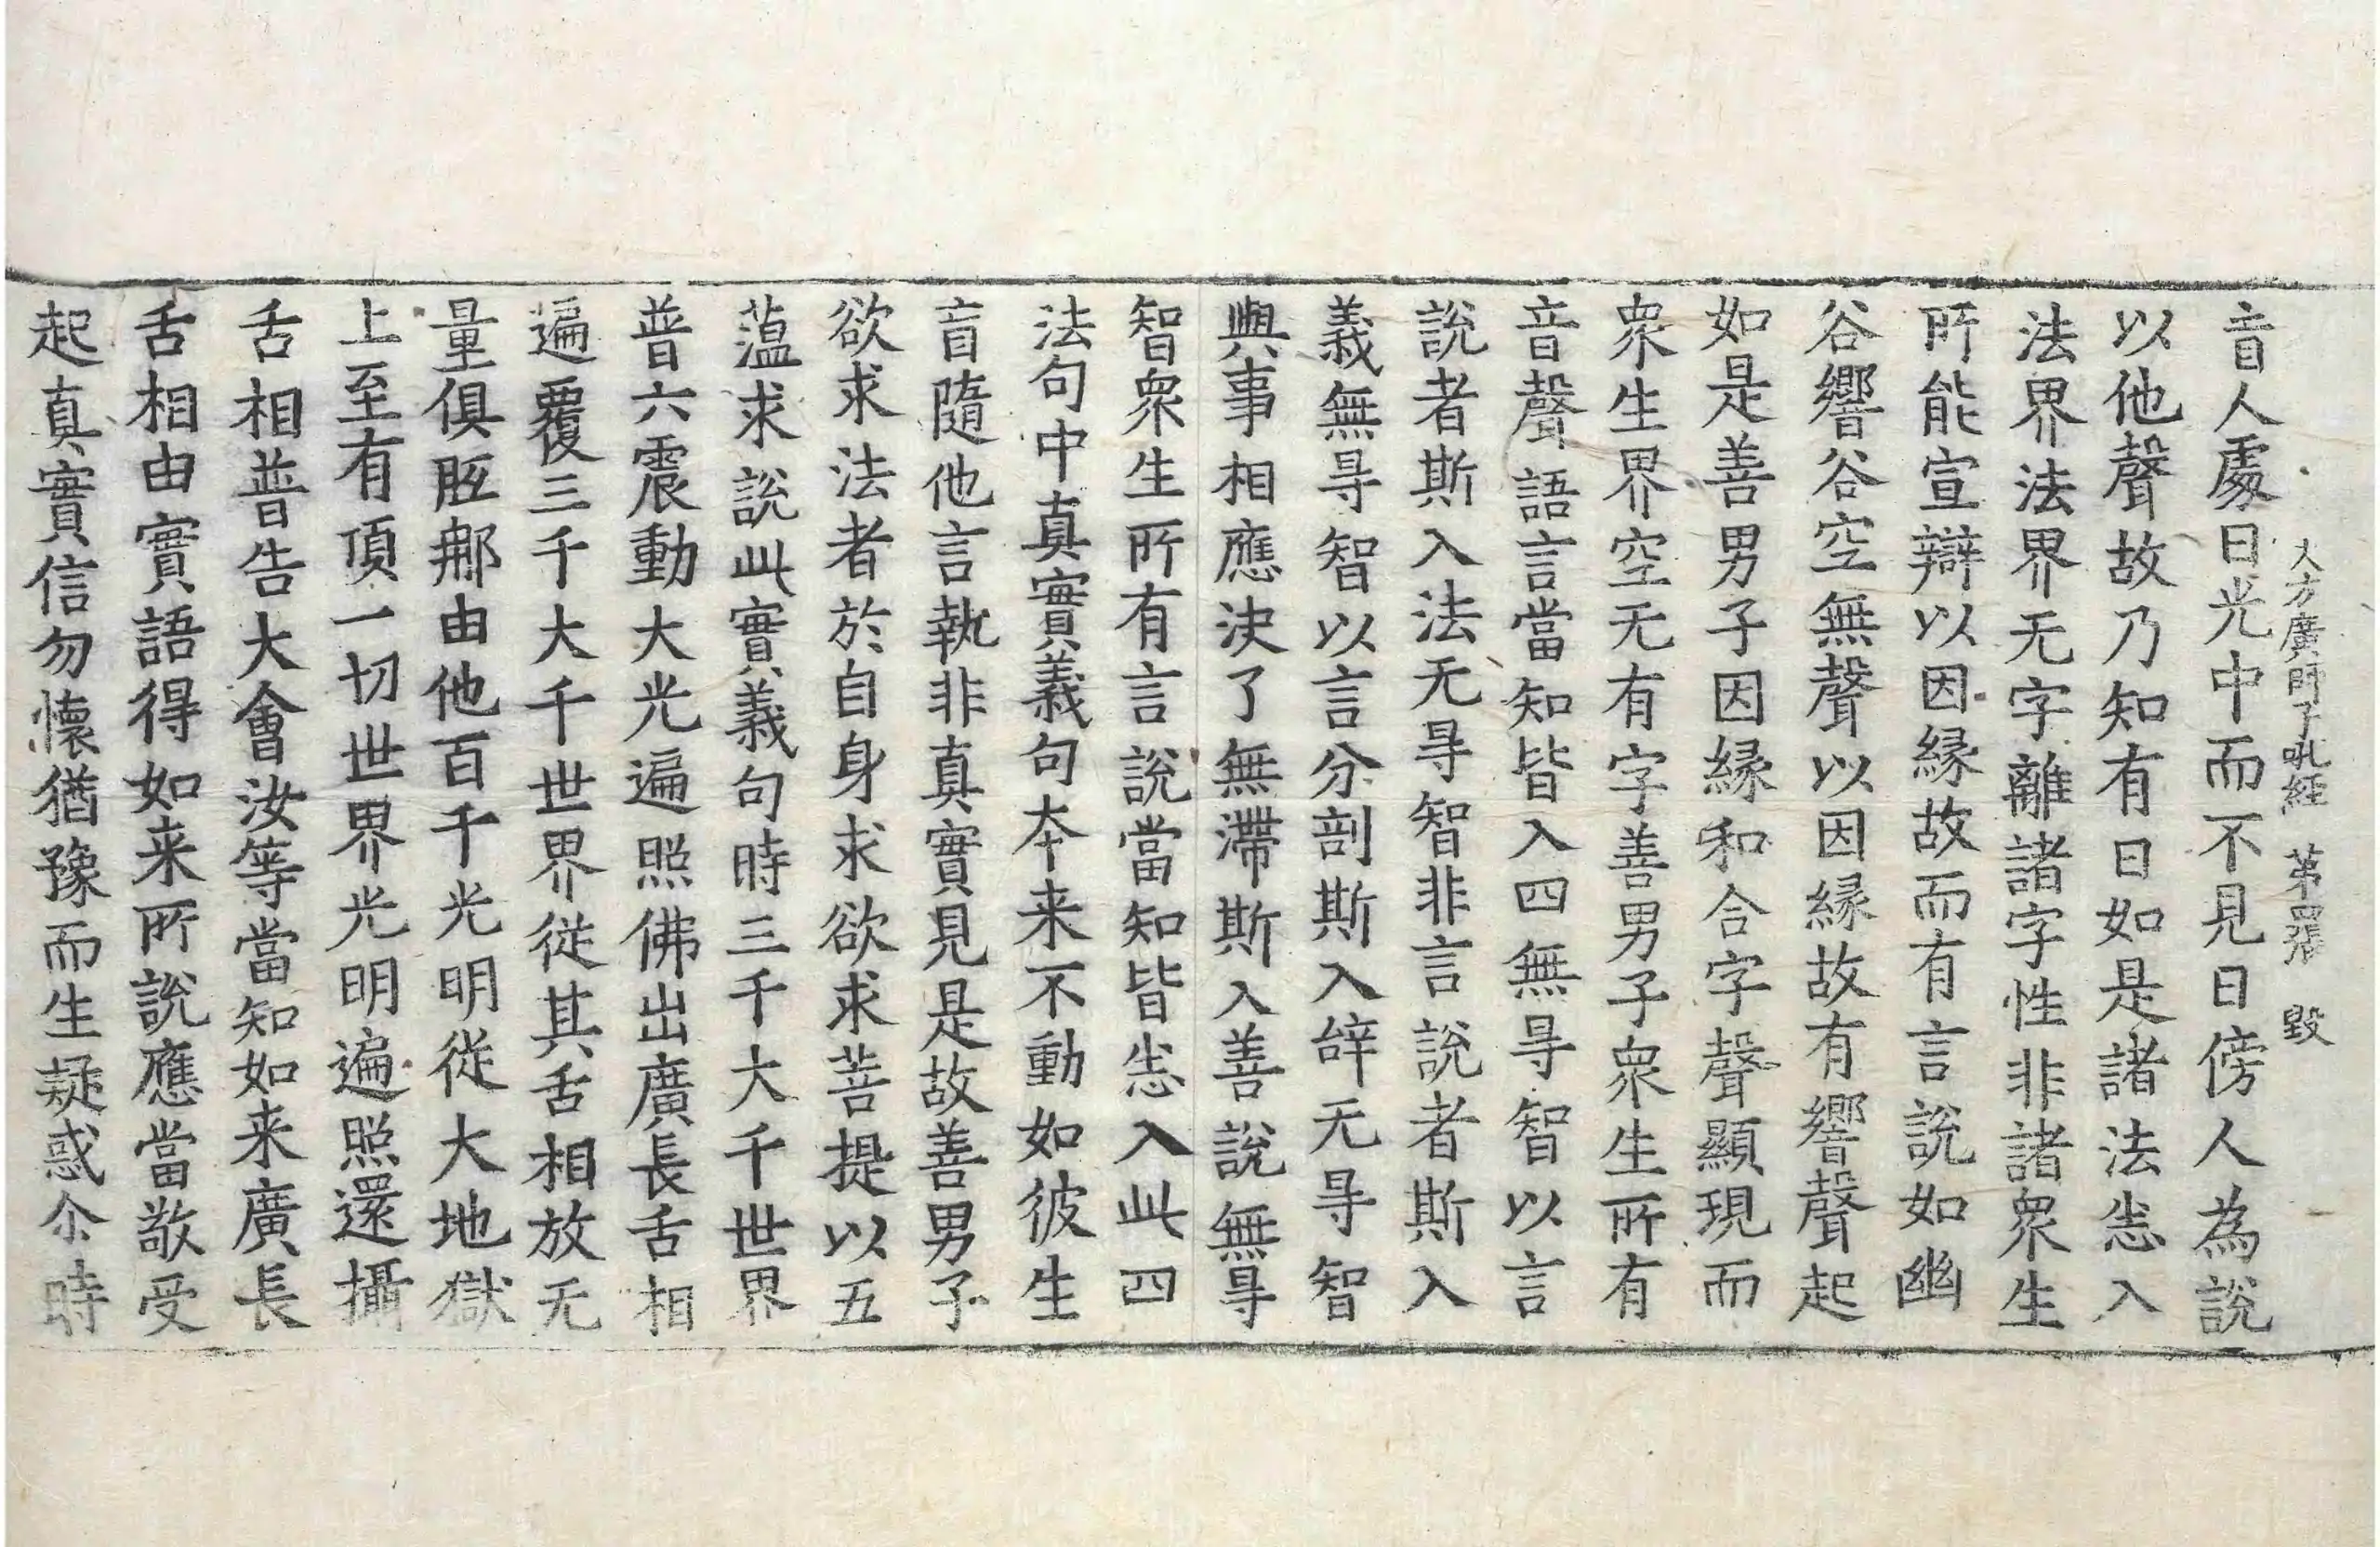 大方廣師子吼經　第四張　毀
盲人處日光中而不見日傍人為說
以他聲故乃知有日如是諸法悉入
法界法界无字離諸字性非諸眾生
所能宣辯以因縁故而有言說如幽
谷響谷空無聲以因縁故有響聲起
如是善男子因縁和合字聲顯現而
眾生界空无有字善男子眾生所有
音聲語言當知皆入四無㝵智以言
說者斯入法无㝵智非言說者斯入
義無㝵智以言分剖斯入辝无㝵智
與事相應決了無滯斯入善說無㝵
智眾生所有言說當知皆悉入此四
法句中真實義句夲来不動如彼生
盲隨他言執非真實見是故善男子
欲求法者於自身求欲求菩提以五
薀求說此實義句時三千大千世界
普六震動大光遍照佛出廣長舌相
遍覆三千大千世界從其舌相放无
量俱胝那由他百千光明從大地獄
上至有頂一切世界光明遍照還攝
舌相普告大會汝等當知如来廣長
舌相由實語得如来所說應當敬受
起真實信勿懷猶豫而生疑惑尒時